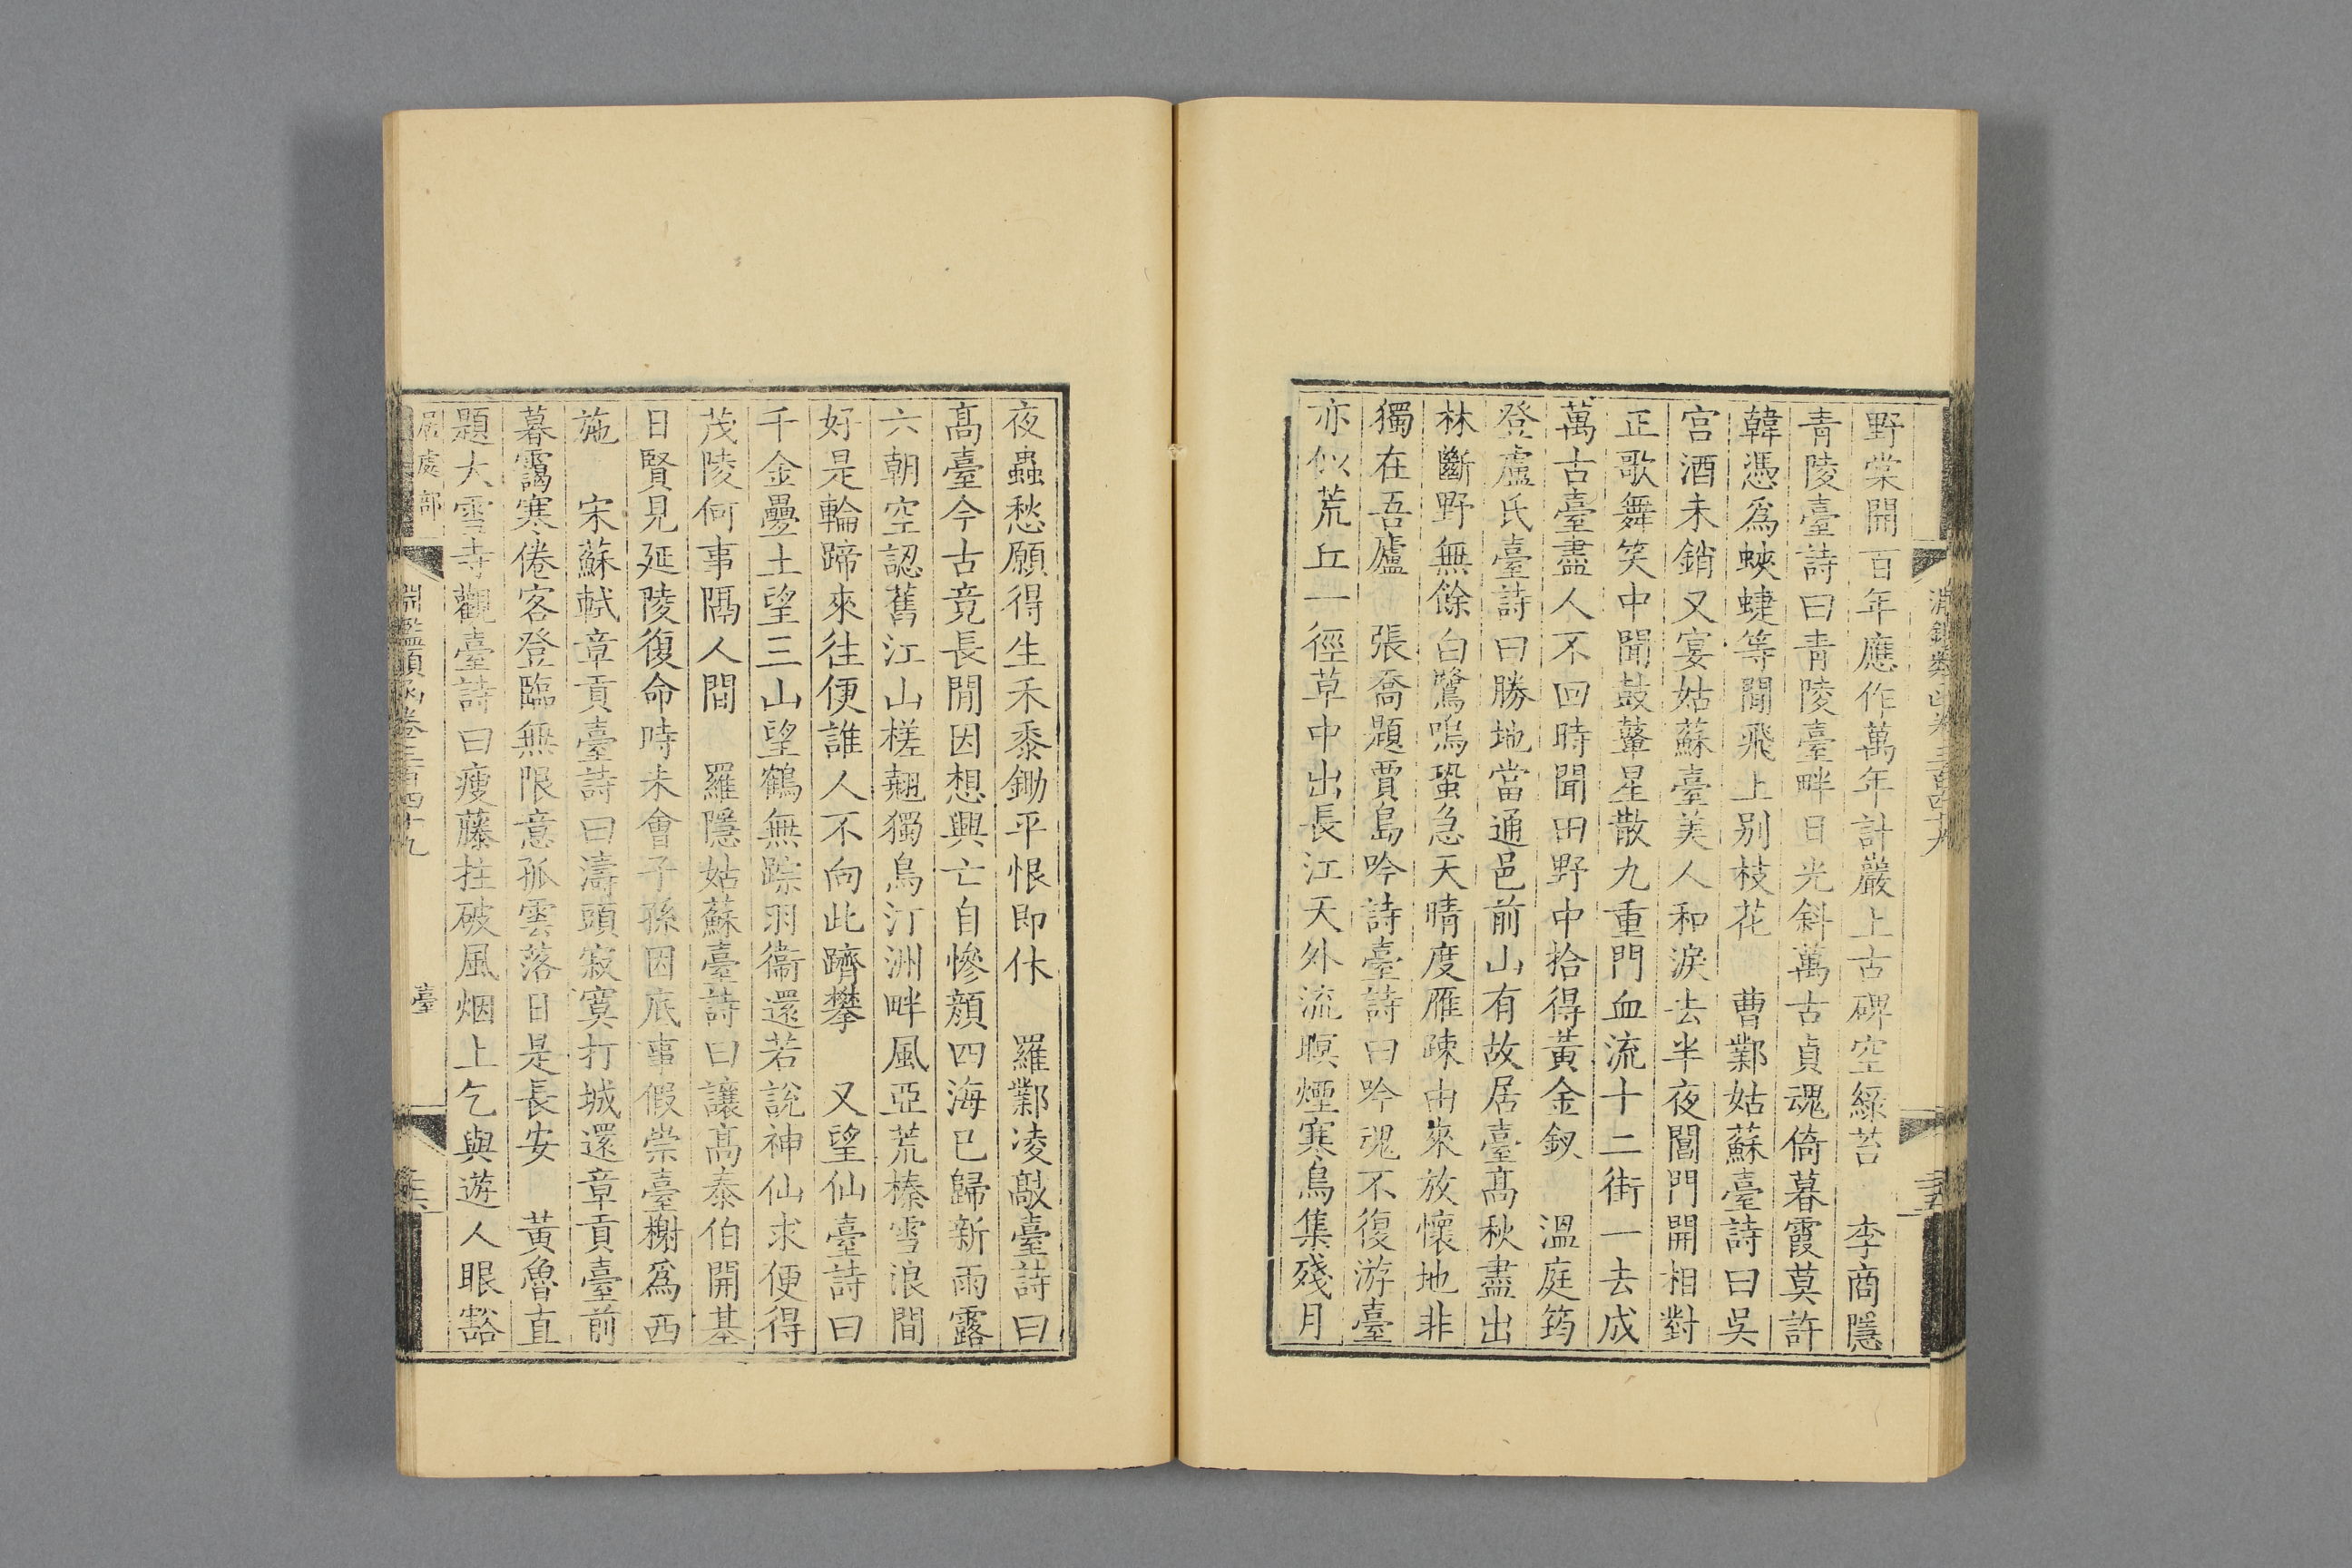 野棠開百年應作萬年計巖上古碑空綠苔　李商隱
青陵臺詩曰青陵臺畔日光斜萬古貞魂倚暮霞莫許
韓憑爲蛺蜨等閒飛上别枝花　曹鄴姑蘇臺詩曰吳
宫酒未銷又宴姑蘇臺美人和淚去半夜閶門開相對
正歌舞笑中聞鼓鼙星散九重門血流十二街一去成
萬古臺盡人不回時聞田野中拾得黃金釵　溫庭筠
登盧氏臺詩曰勝地當通邑前山有故居臺高秋盡出
林斷野無餘白鷺鳴蛩急天晴度雁疎由來放懷地非
獨在吾廬　張喬題賈島吟詩臺詩曰吟魂不復游臺
亦似荒丘一徑草中出長江天外流暝煙寒鳥集殘月
夜蟲愁願得生禾黍鋤平恨即休　羅鄴凌歊臺詩曰
髙臺今古竟長閒因想興亡自慘顔四海已歸新雨露
六朝空認舊江山槎翹獨鳥汀洲畔風亞荒榛雪浪間
好是輪蹄來往便誰人不向此躋攀　又望仙臺詩曰
千金壘土望三山望鶴無踪羽衞還若說神仙求便得
茂陵何事隔人間　羅隱姑蘇臺詩曰讓髙泰伯開基
日賢見延陵復命時未會子孫因底事假崇臺榭爲西
施　宋蘇軾章貢臺詩曰濤頭寂寞打城還章貢臺前
暮靄寒倦客登臨無限意孤雲落日是長安　黃魯直
題大雲寺觀臺詩曰瘦藤拄破風烟上乞與遊人眼豁
居處部　淵鑑類函卷三百四十九　臺